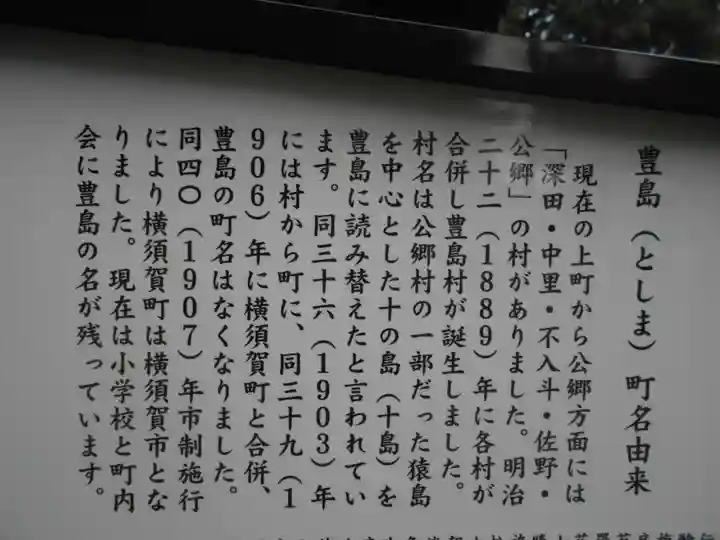 豊島（としま）町名由来
現在の上町から公郷方面には
「深田・中里・不入斗・佐野・
公郷」の村がありました。明治
二十二（１８８９）年に各村が
合併し豊島村が誕生しました。
村名は公郷村の一部だった猿島
を中心とした十の島（十島）を
豊島に読み替えたと言われてい
ます。同三十六（１９０３）年
には村から町に、同三十九（１
９０６）年に横須賀町と合併、
豊島の町名はなくなりました。
同四〇（１９０７）年市制施行
により横須賀町は横須賀市とな
りました。現在は小学校と町内
会に豊島の名が残っています。